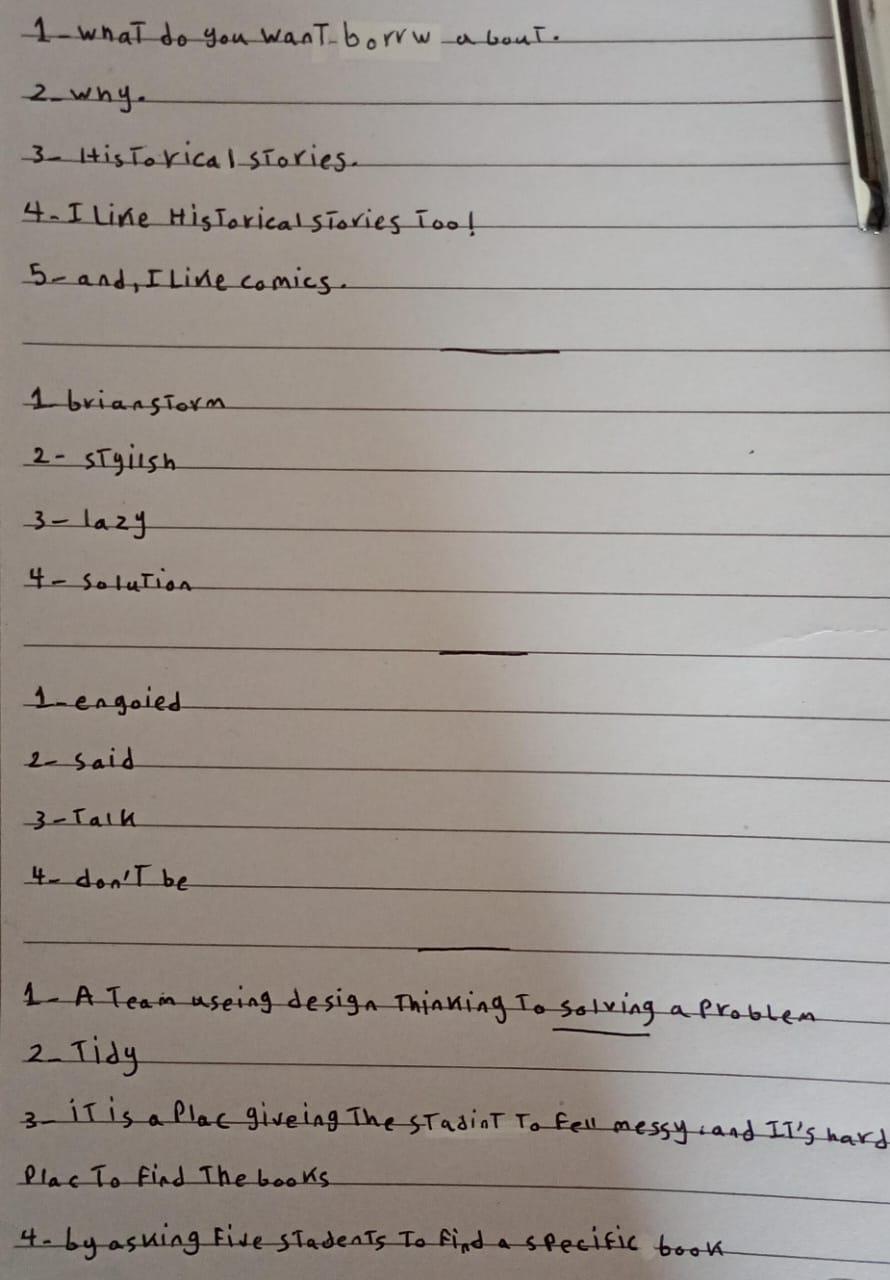 1- what do you want borrw about.
2- why.
3- Historical stories.
4- I like Historical stories too!
5- and, I like comics.
1 brianstorm
2- stylish
3- lazy
4- solution
1- engoied
2- said
3- Talk
4- don't be
1- A Team useing design Thinking To solving a problem
2- Tidy
3- it is a Plac giveing The stadint To fell messy, and IT's hard
Plac To find The books
4- by asking Five stadents To find a specific book